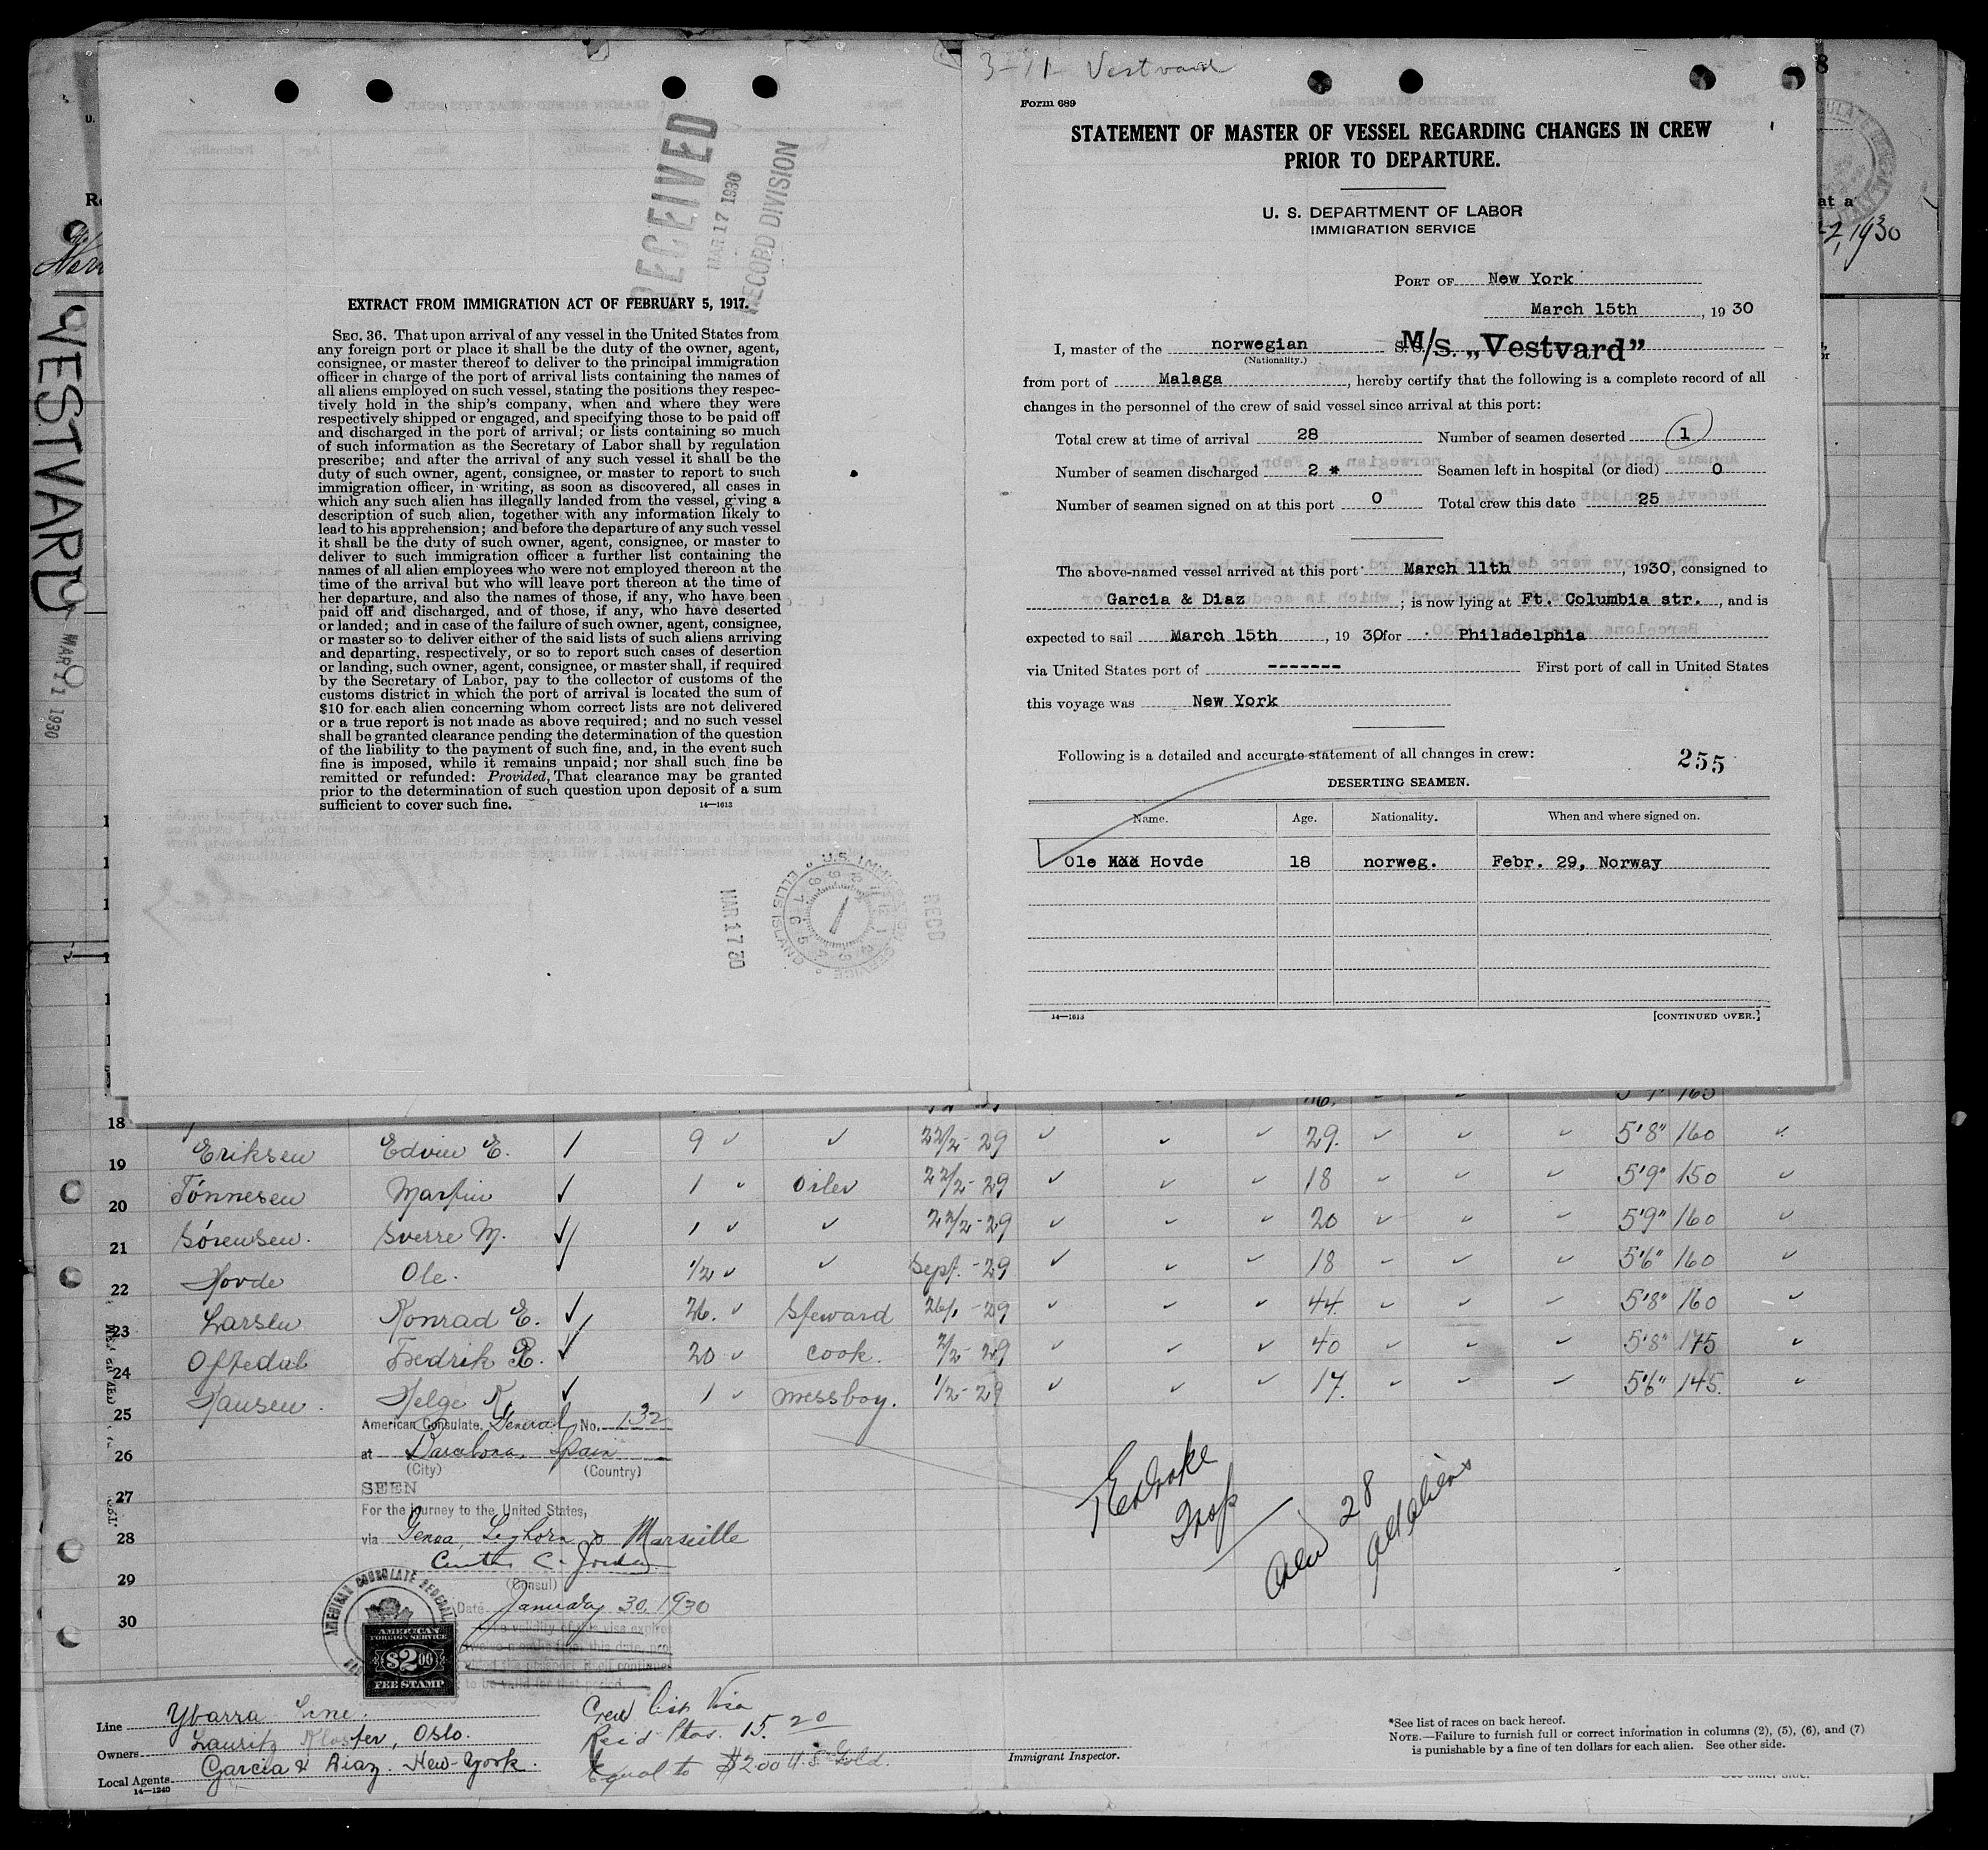 3-11 Vestvard
EXTRACT FROM IMMIGRATION ACT OF FEBRUARY 5, 1917.
SEC. 36. That upon arrival of any vessel in the United States from
any foreign port or place it shall be the duty of the owner, agent,
consignee, or master thereof to deliver to the principal immigration
officer in charge of the port of arrival lists containing the names of
all aliens employed on such vessel, stating the positions they respec-
tively hold in the ship's company, when and where they were
respectively shipped or engaged, and specifying those to be paid off
and discharged in the port of arrival; or lists containing so much
of such information as the Secretary of Labor shall by regulation
prescribe; and after the arrival of any such vessel it shall be the
duty of such owner, agent, consignee, or master to report to such
immigration officer, in writing, as soon as discovered, all cases in
which any such alien has illegally landed from the vessel, giving a
description of such alien, together with any information likely to
lead to his apprehension; and before the departure of any such vessel
it shall be the duty of such owner, agent, consignee, or master to
deliver to such immigration officer a further list containing the
names of all alien employees who were not employed thereon at the
time of the arrival but who will leave port thereon at the time of
her departure, and also the names of those, if any, who have been
paid off and discharged, and of those, if any, who have deserted
or landed; and in case of the failure of such owner, agent, consignee,
or master so to deliver either of the said lists of such aliens arriving
and departing, respectively, or so to report such cases of desertion
or landing, such owner, agent, consignee, or master shall, if required
by the Secretary of Labor, pay to the collector of customs of the
customs district in which the port of arrival is located the sum of
$10 for each alien concerning whom correct lists are not delivered
or a true report is not made as above required; and no such vessel
shall be granted clearance pending the determination of the question
of the liability to the payment of such fine, and, in the event such
fine is imposed, while it remains unpaid; nor shall such fine be
remitted or refunded: Provided, That clearance may be granted
prior to the determination of such question upon deposit of a sum
sufficient to cover such fine. 14—1613
RECEIVED
MAR 17 1930
RECORD DIVISION
MAR 17 30
U.S. IMMIGRATION SERVICE ELLIS ISLAND
REC'D
VESTVARD
MAR 11 1930
Form 689
STATEMENT OF MASTER OF VESSEL REGARDING CHANGES IN CREW
PRIOR TO DEPARTURE.
U. S. DEPARTMENT OF LABOR
IMMIGRATION SERVICE
PORT OF New York
March 15th, 1930
I, master of the norwegian S.S. M/S. „Vestvard”
(Nationality.)
from port of Malaga, hereby certify that the following is a complete record of all
changes in the personnel of the crew of said vessel since arrival at this port:
Total crew at time of arrival 28 Number of seamen deserted 1
Number of seamen discharged 2 * Seamen left in hospital (or died) 0
Number of seamen signed on at this port 0 Total crew this date 25
The above-named vessel arrived at this port March 11th, 1930, consigned to
Garcia & Diaz; is now lying at Ft. Columbia str., and is
expected to sail March 15th, 1930 for Philadelphia
via United States port of ------- First port of call in United States
this voyage was New York
Following is a detailed and accurate statement of all changes in crew:
255
DESERTING SEAMEN.
Name. Age. Nationality. When and where signed on.
Ole XXX Hovde 18 norweg. Febr. 29, Norway
14—1613 [CONTINUED OVER.]
18 Eriksen Edvin E. 9 22/2-29 29. 5'8" 160
19 Tönnesen Martin 1 Oiler 22/2-29 18 5'9" 150
20 Sörensen. Sverre M. 1 22/2-29 20 5'9" 160
21 Hovde Ole. 1/2 Sept.-29 18 5'6" 160
22 Larsen Konrad E. 26. Steward 26/1-29 44 5'8" 160
23 Oftedal Fredrik R. 20 Cook. 2/2-29 40 5'8" 175
24 Hansen. Helge K. 1 messboy. 1/2-29 17. 5'6" 145.
25
26
27
28
29
30
American Consulate, General No. 132
at Barcelona, Spain
(City) (Country)
SEEN
For the journey to the United States,
via Genoa, Leghorn & Marseille
(Consul)
Date January 30, 1930
AMERICAN
FOREIGN SERVICE
$2.00
FEE STAMP
Crew 28
all aliens
Line Ybarra Line.
Owners Lauritz Kloster, Oslo.
Local Agents Garcia & Diaz. New-York.
14—1240
Crew list Visa
Rec'd Ptas. 15.20
Equal to $2.00 U.S. Gold.
Immigrant Inspector.
*See list of races on back hereof.
NOTE.—Failure to furnish full or correct information in columns (2), (5), (6), and (7)
is punishable by a fine of ten dollars for each alien. See other side.